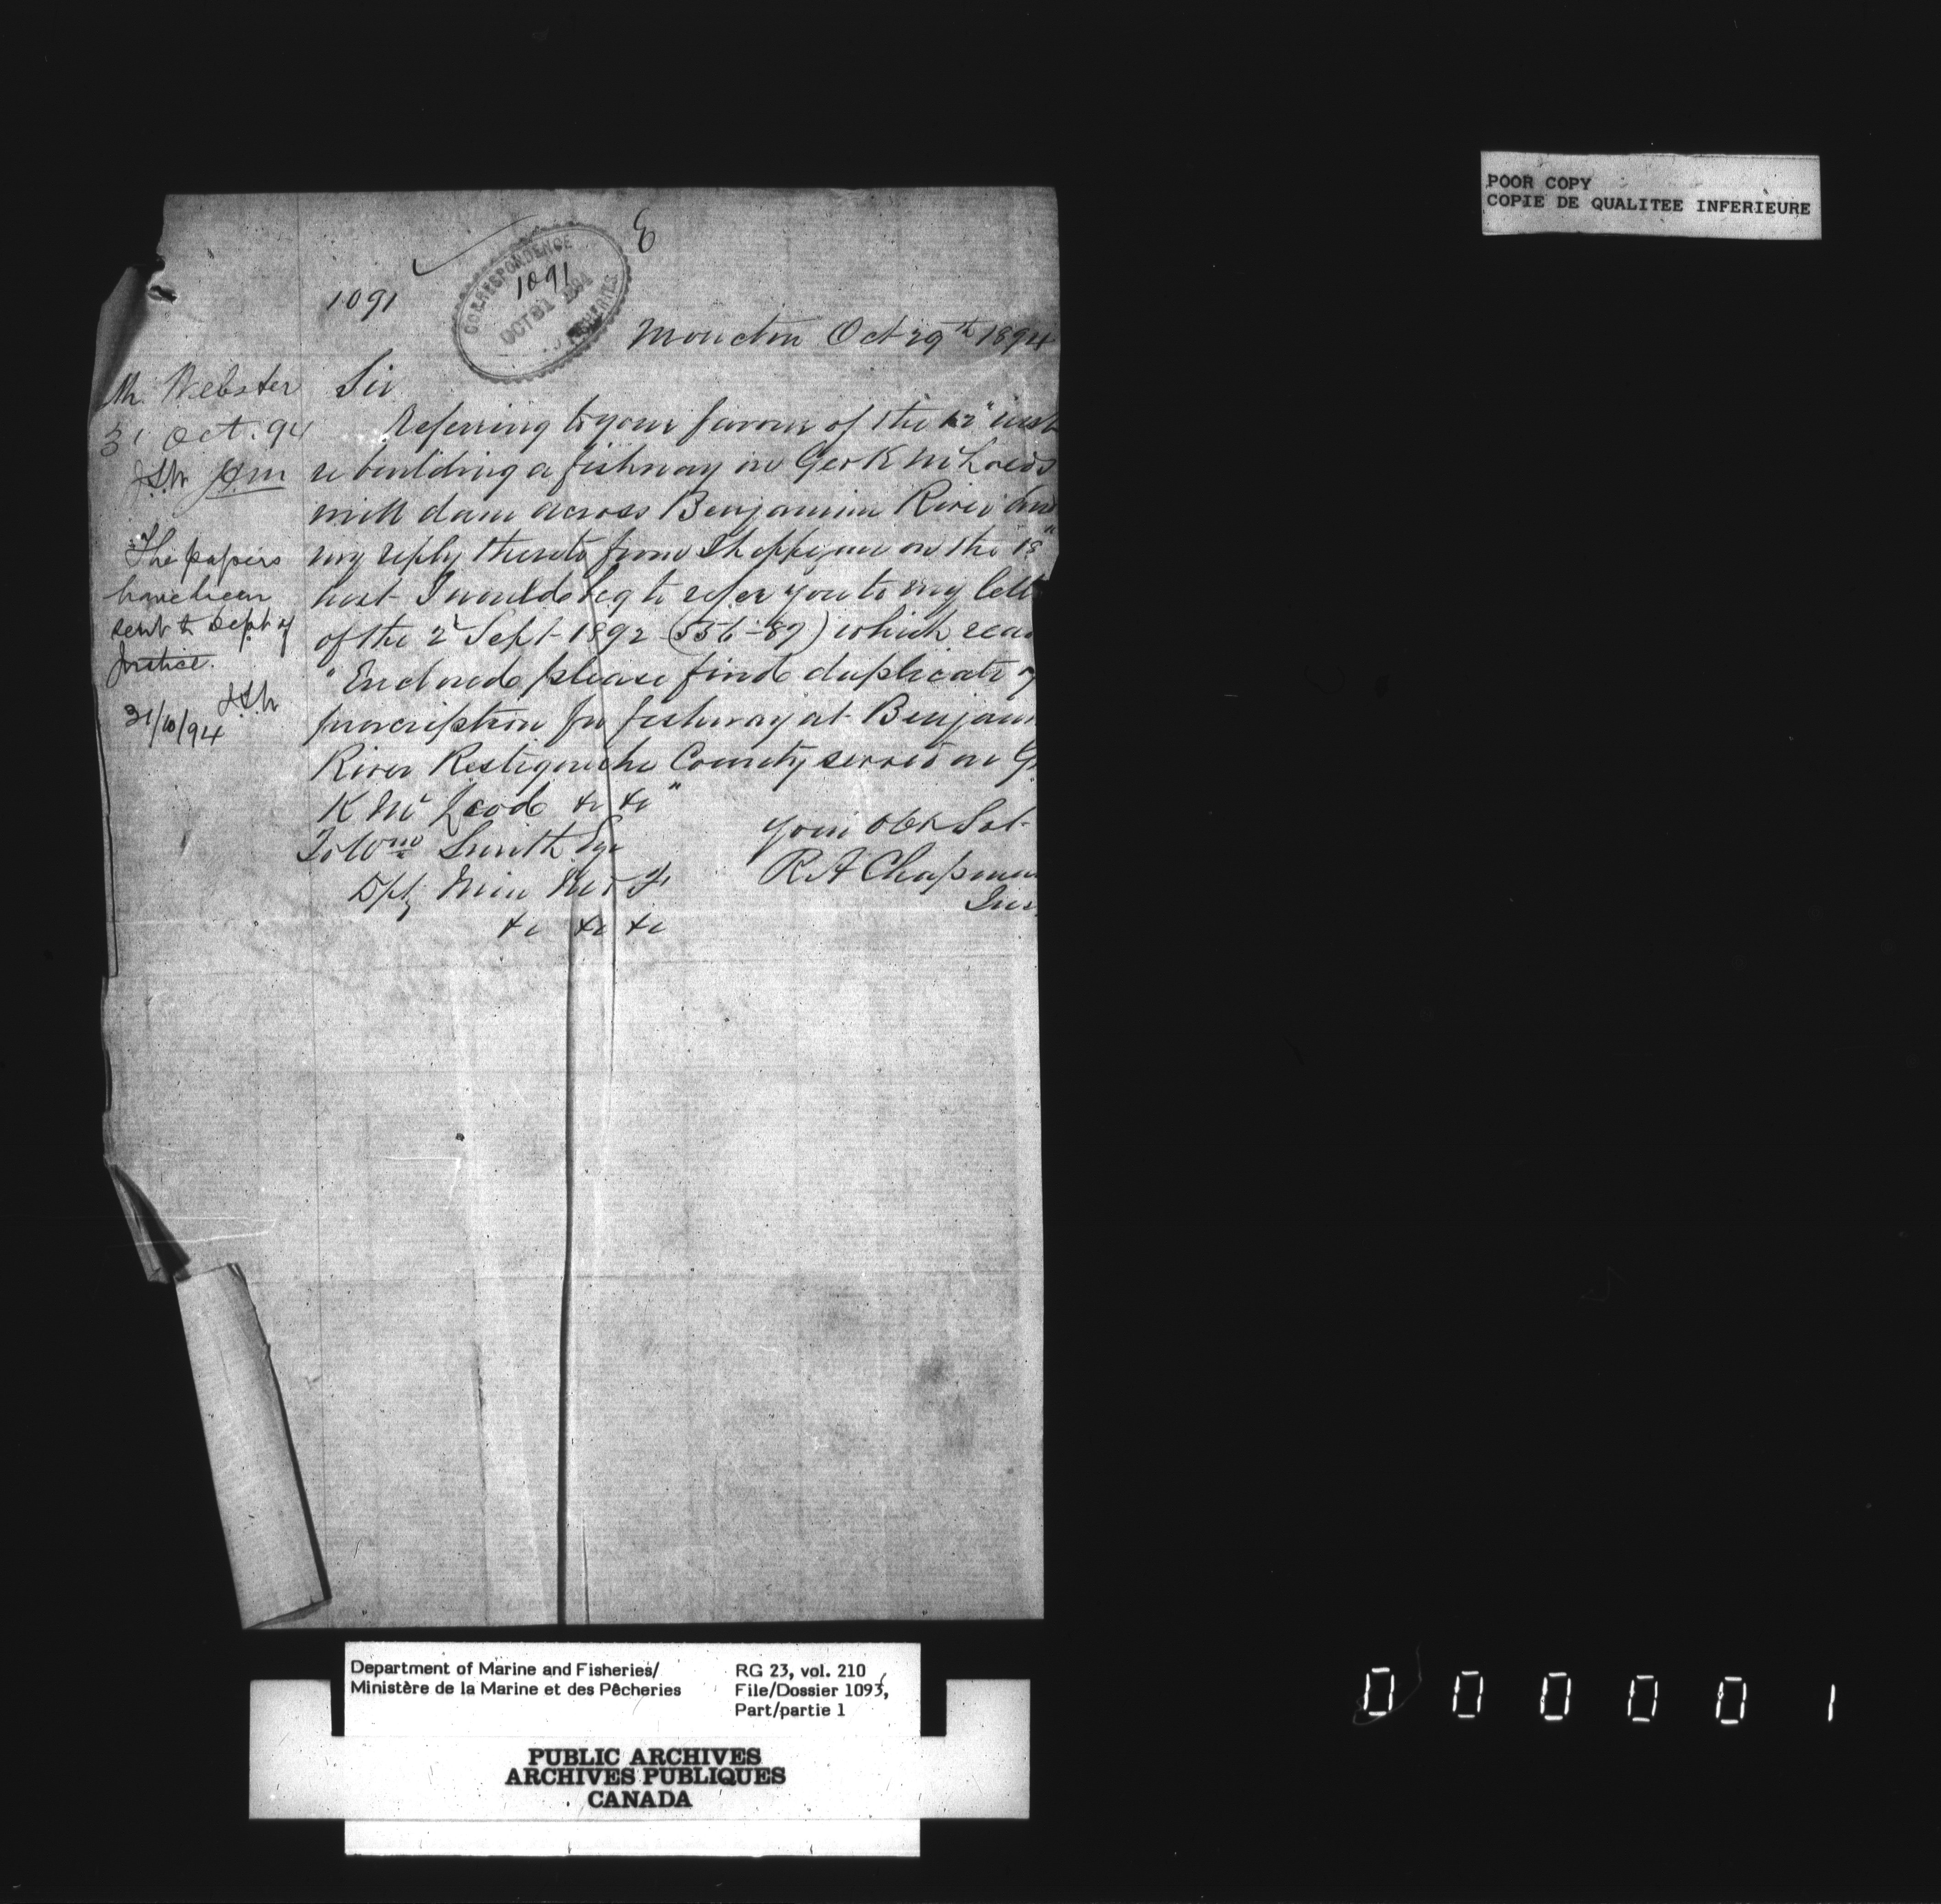 POOR COPY
COPIE DE QUALITEE INFERIEURE
E
1091
CORRESPONDENCE
1091
OCT 31 1894
FISHERIES
Moncton Oct 29th 1894
Mr. Webster
31 Oct. 94
The papers
have been
sent to Dept of
Justice.
31/10/94
Sir
Referring to your favour of the 12" inst
re building a fishway in Geo K McLeods
mill dam across Benjamin River and
my reply thereto from on the 18"
inst I would beg to refer you to my lett
of the 2d Sept 1892 (556-89) which rea
"Enclosed please find duplicate of
prescription for fishway at Benjam
River Restigouche County served on G
K McLeod &c &c"
Your Obt Svt
R A Chapman
Ins
To Wm Smith Esq
Dpty Min M & F
&c &c &c
Department of Marine and Fisheries/
Ministère de la Marine et des Pêcheries
RG 23, vol. 210
File/Dossier 1093,
Part/partie 1
PUBLIC ARCHIVES
ARCHIVES PUBLIQUES
CANADA
0 0 0 0 0 1